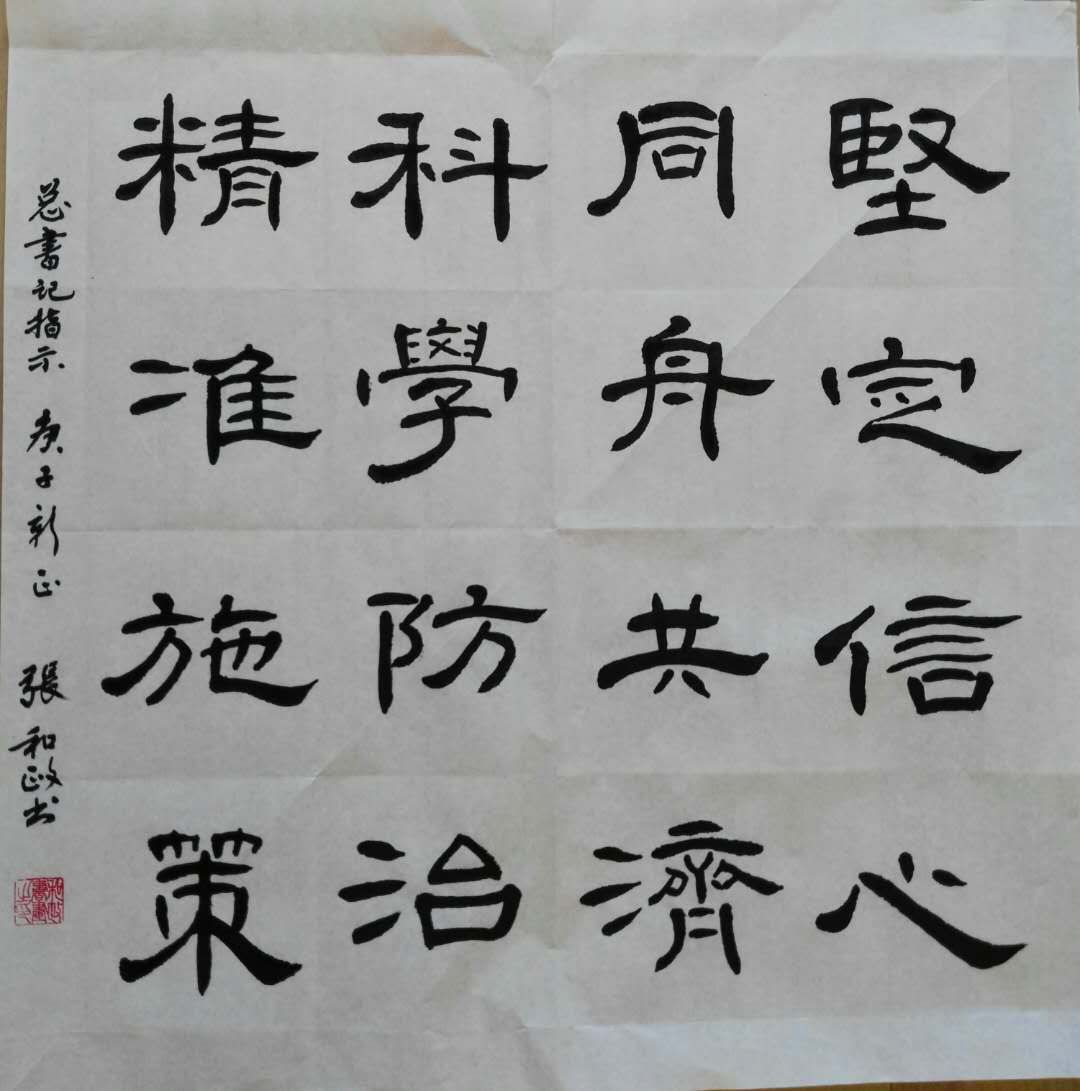 堅定信心
同舟共濟
科學防治
精准施策
总書记指示 庚子新正 張和政书